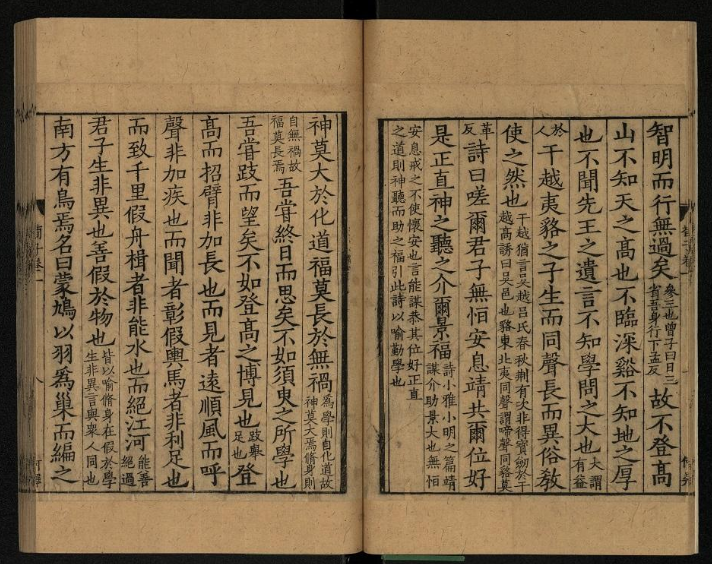 智明而行無過矣參三也曾子曰日三省吾身行下孟反故不登高
山不知天之高也不臨深谿不知地之厚
也不聞先王之遺言不知學問之大也大謂有益
於人干越夷貉之子生而同聲長而異俗教
使之然也干越猶言吳越呂氏春秋荆有次非得寶劒於干越高誘曰吳邑也貉東北夷同聲謂啼聲同貉莫
革反詩曰嗟爾君子無恒安息靖共爾位好
是正直神之聽之介爾景福詩小雅小明之篇靖謀介助景大也無恒
安息戒之不使懷安也言能謀恭其位好正直之道則神聽而助之福引此詩以喻勤學也
神莫大於化道福莫長於無禍為學則自化道故神莫大焉脩身則
自無禍故福莫長焉吾甞終日而思矣不如須臾之所學也
吾甞跂而望矣不如登高之博見也跂舉足也登
高而招臂非加長也而見者遠順風而呼
聲非加疾也而聞者彰假輿馬者非利足也
而致千里假舟楫者非能水也而絕江河能善絕過
君子生非異也善假於物也皆以喻脩身在假於學生非異言與衆人同也
南方有鳥焉名曰蒙鳩以羽爲巢而編之